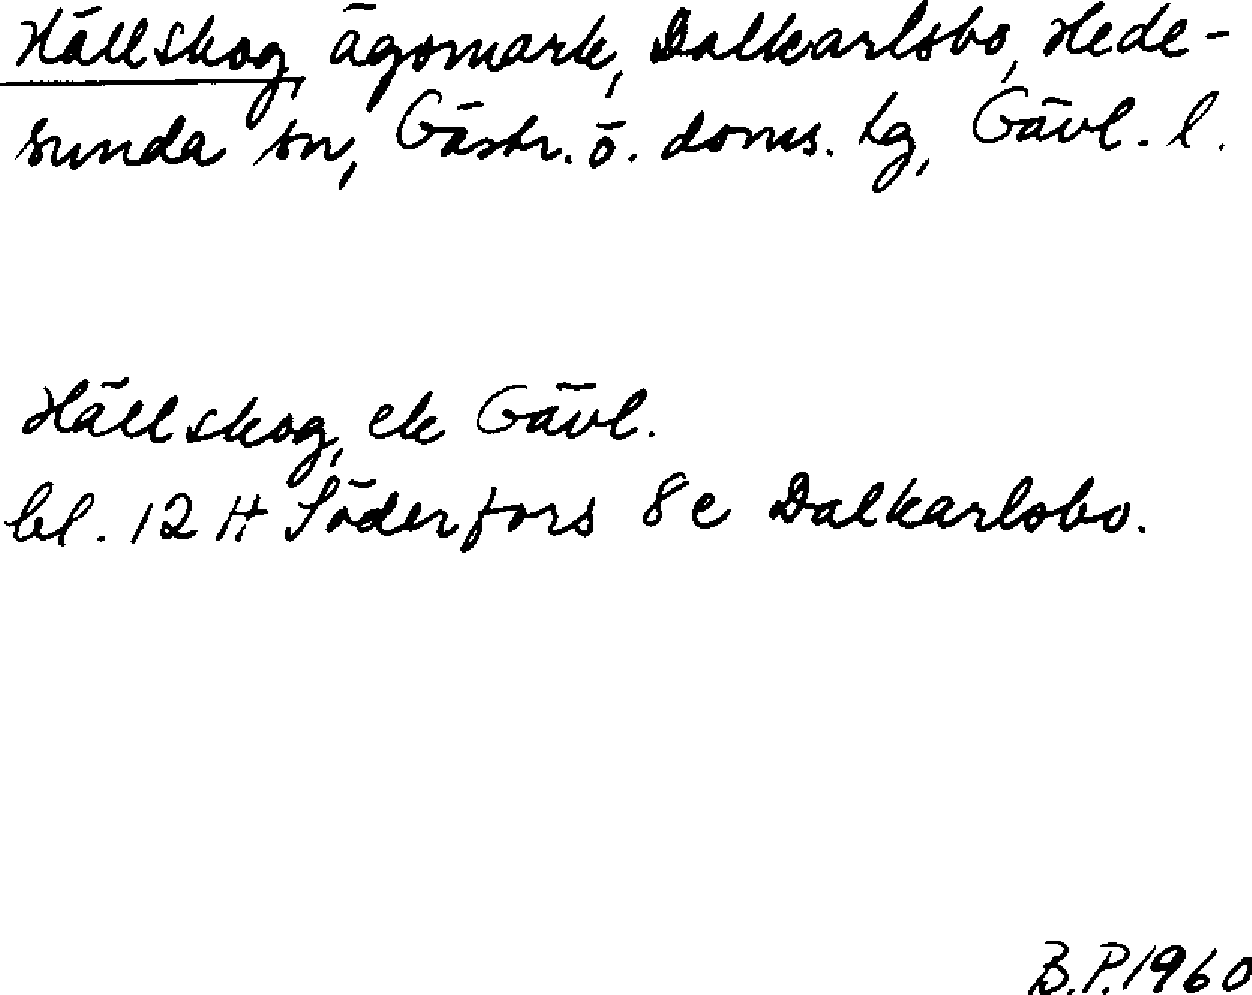 Hällskog, ägomark, Dalkarlsbo, Hede-
sunda sn, Gästr. ö. doms. tg, Gävl. l.
Hällskog, ek Gävl.
bl. 12 H Söderfors 8c Dalkarlsbo.
B.P. 1960